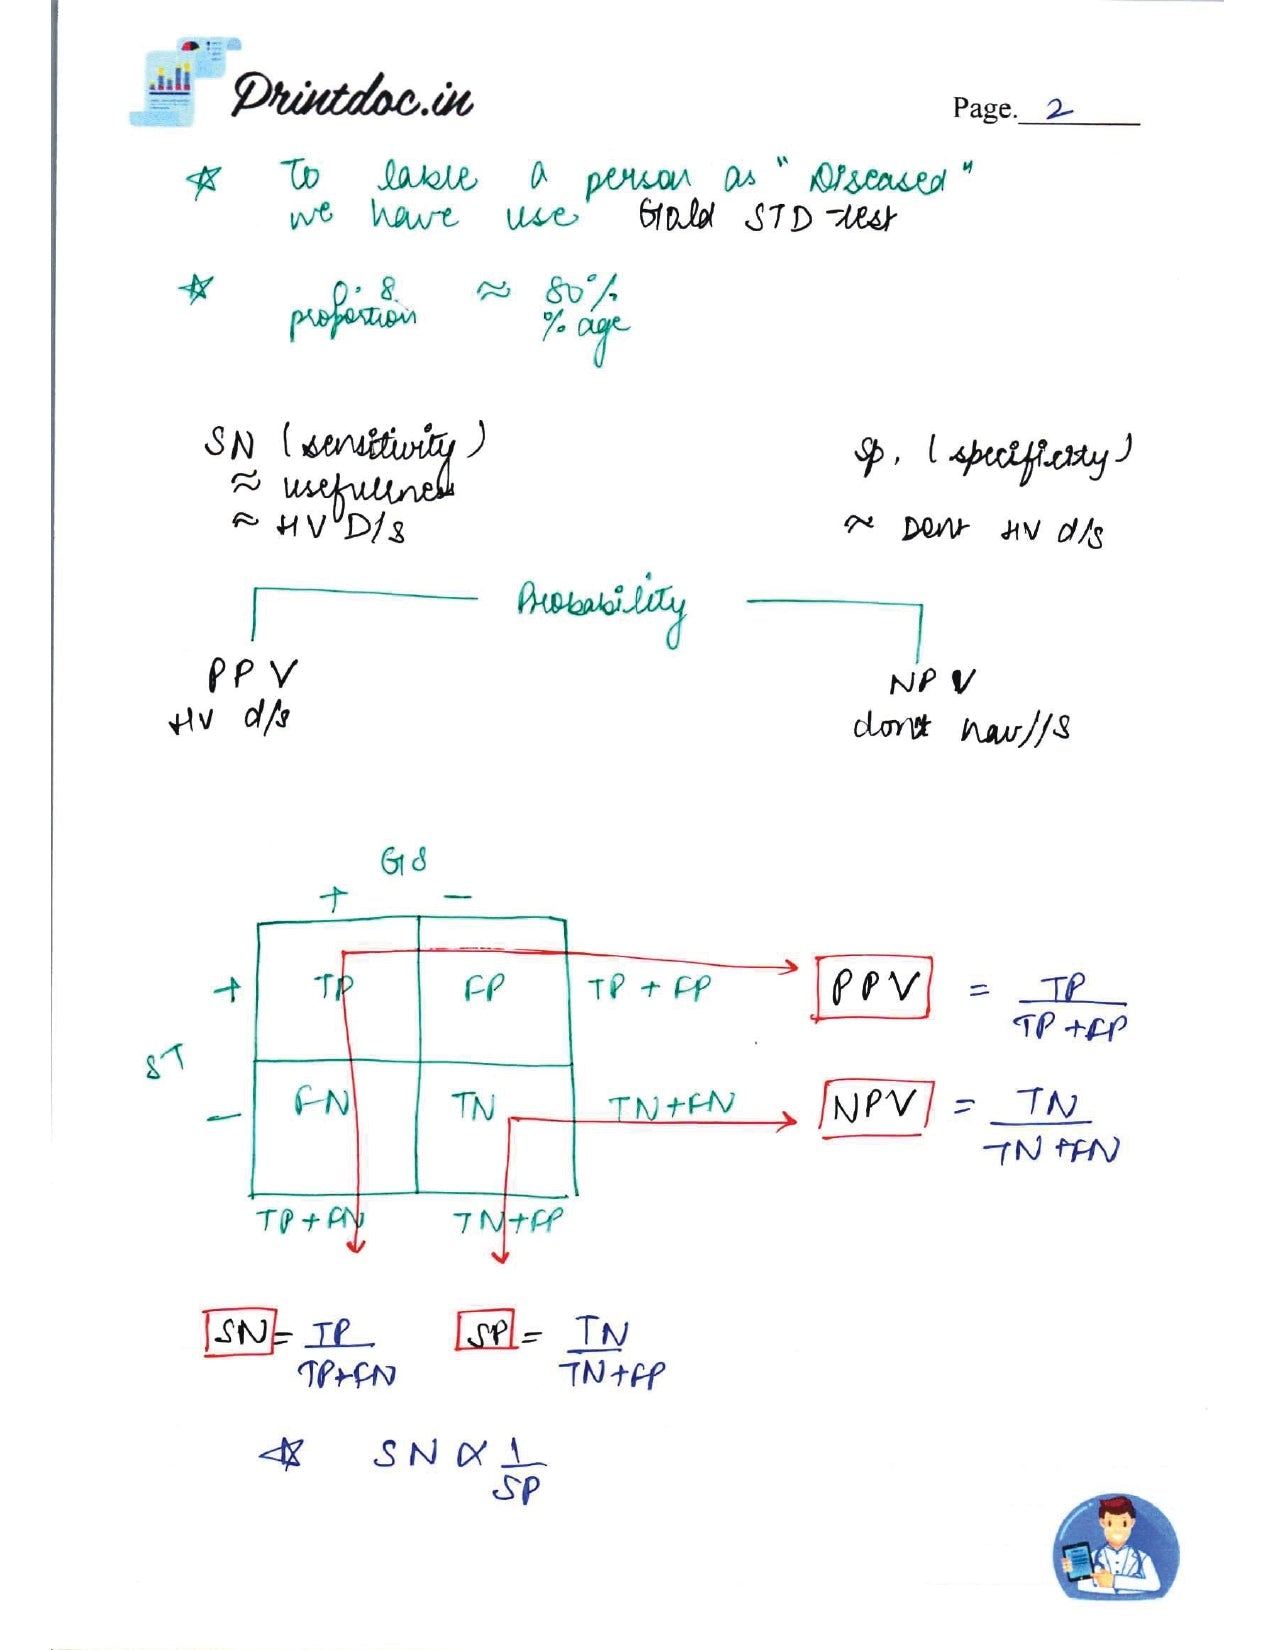 Printdoc.in
Page. 2
☆ To lable a person as "Diseased"
we have use Gold STD test
☆ 0.8 ≈ 80%
proportion % age
SN (sensitivity)
≈ usefullness
≈ HV D/s
Sp. (specificity)
≈ Dont HV d/s
Probability
PPV
HV d/s
NPV
dont hav//s
GS
+ -
+ TP FP TP + FP PPV = TP / TP + FP
ST
- FN TN TN+FN NPV = TN / TN + FN
TP + FN TN+FP
SN = TP / TP+FN SP = TN / TN+FP
☆ SN ∝ 1 / SP